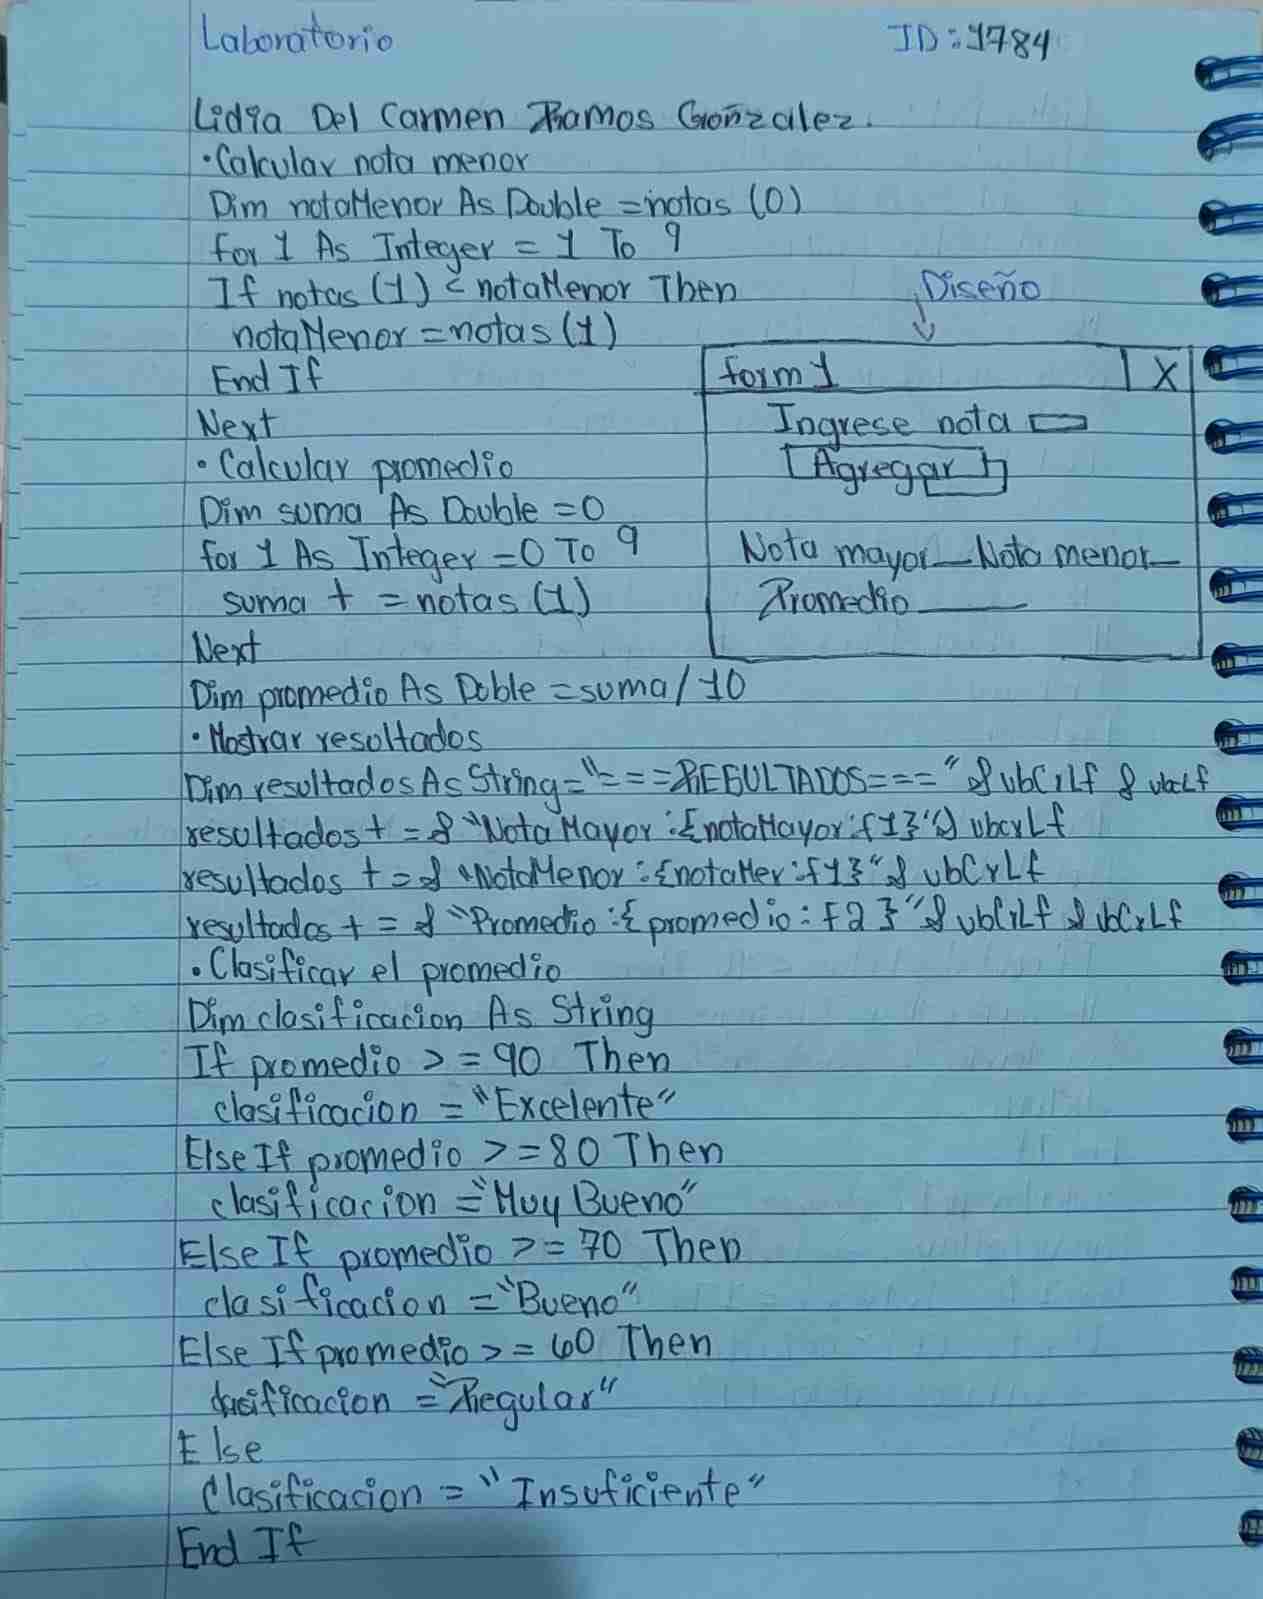 Laboratorio
ID: 1784
Lidia Del Carmen Ramos Gonzalez.
• Calcular nota menor
Dim notaMenor As Double = notas (0)
for 1 As Integer = 1 To 9
If notas (1) < notaMenor Then
notaMenor = notas (1)
End If
Next
• Calcular promedio
Dim suma As Double = 0
for 1 As Integer = 0 To 9
suma + = notas (1)
Next
Dim promedio As Doble = suma / 10
• Mostrar resoltados
Diseño
form 1 X
Ingrese nota
Agregar
Nota mayor Nota menor
Promedio
Dim resultados As String = "=== RESULTADOS ===" & vbCrLf & vbcLf
resultados + = & "Nota Mayor : {notaMayor : f1}" & vbcrLf
resultados + = & "NotaMenor : {notaMer : f1}" & vbCrLf
resultados + = & "Promedio : { promedio : F2 }" & vbCrLf & vbCrLf
• Clasificar el promedio
Dim clasificacion As String
If promedio > = 90 Then
clasificacion = "Excelente"
Else If promedio > = 80 Then
clasificacion = "Muy Bueno"
Else If promedio > = 70 Then
clasificacion = "Bueno"
Else If promedio > = 60 Then
clasificacion = "Regular"
Else
Clasificacion = "Insuficiente"
End If